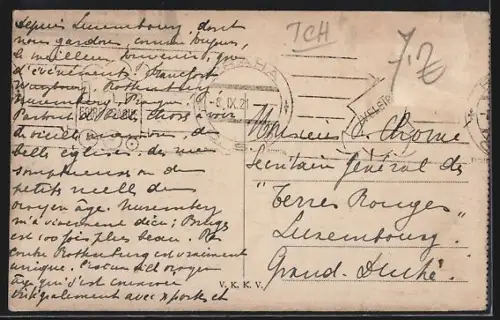 Depuis Luxembourg, dont
nous gardons, comme toujours,
le meilleur souvenir, que
d'événements ! Francfort
Wurzbourg, Rothenburg
Nuremberg, Prague.
Partout de choses à voir
de vieilles maisons, de
belles églises, des rues
somptueuses ou de
petites ruelles du
moyen âge. Nuremberg
m'a vivement déçu ; Bruges
est 100 fois plus beau. Par
contre Rothenburg est vraiment
unique. Aucun
âge qui s'est conservé
intégralement avec portes et
PRAHA
-8.IX.21
Monsieur
Secrétaire Général des
"Terres Rouges"
Luxembourg.
Grand-Duché.
V. K. K. V.
TCH
7.Z